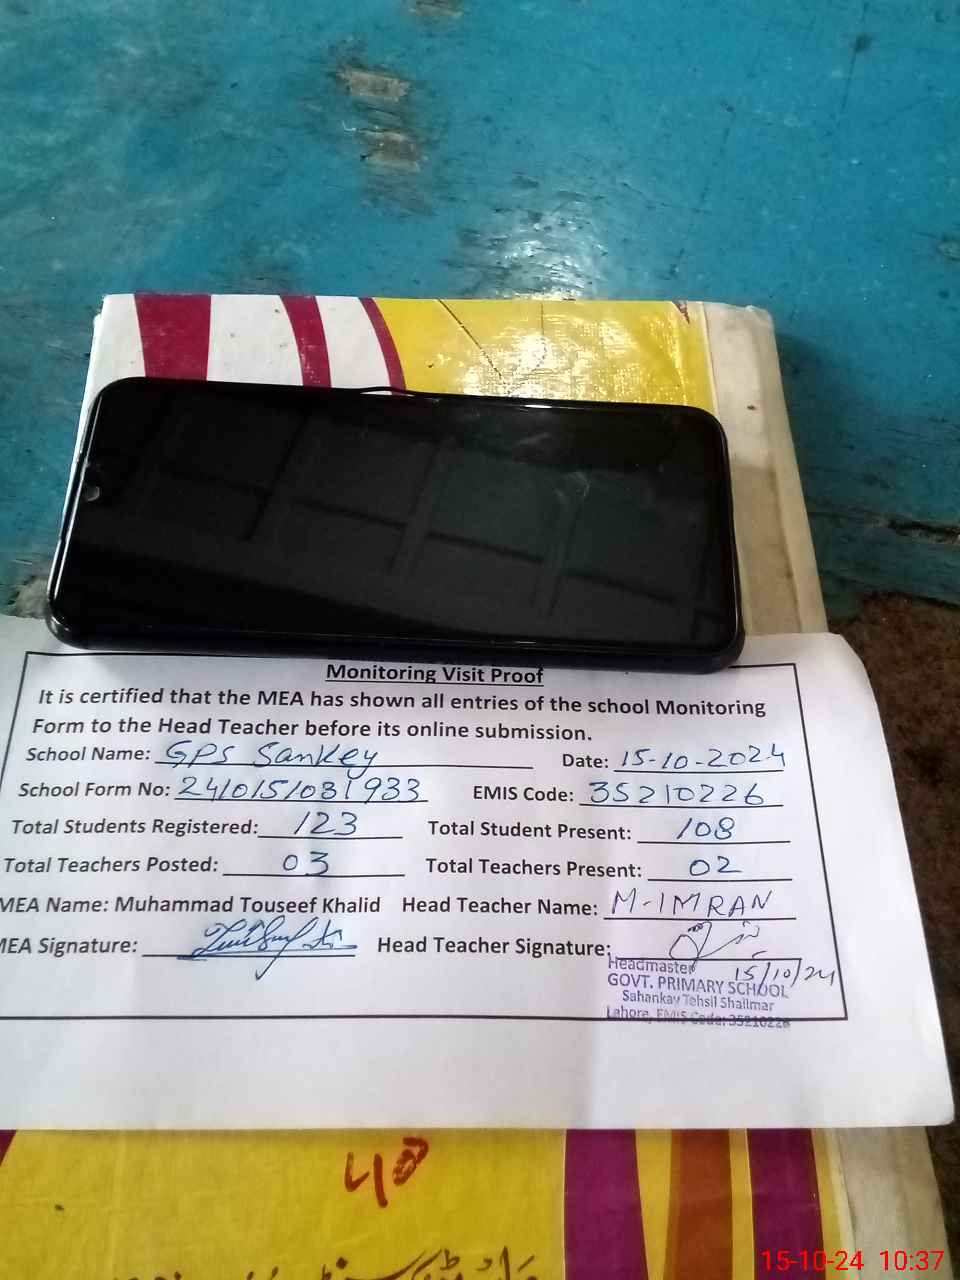 Monitoring Visit Proof
It is certified that the MEA has shown all entries of the school Monitoring
Form to the Head Teacher before its online submission.
School Name: GPS Sankey Date: 15-10-2024
School Form No: 24/015/081933 EMIS Code: 35210226
Total Students Registered: 123 Total Student Present: 108
Total Teachers Posted: 03 Total Teachers Present: 02
MEA Name: Muhammad Touseef Khalid Head Teacher Name: M-IMRAN
MEA Signature: Head Teacher Signature:
Headmaster 15/10/24
GOVT. PRIMARY SCHOOL
Sahankay Tehsil Shalimar
Lahore, EMIS Code: 35210226
15-10-24 10:37